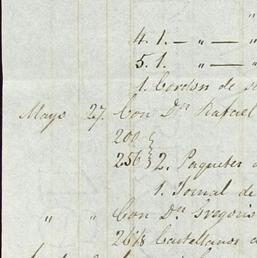 "
4. 1. — " — "
5. 1. — " — "
1. Cordon de
Mayo 27. Con Dn Rafael
200
256 } 2. Paquetes
1. Jornal de
" " Con Dn Gregorio
26 1/8 Castellanos